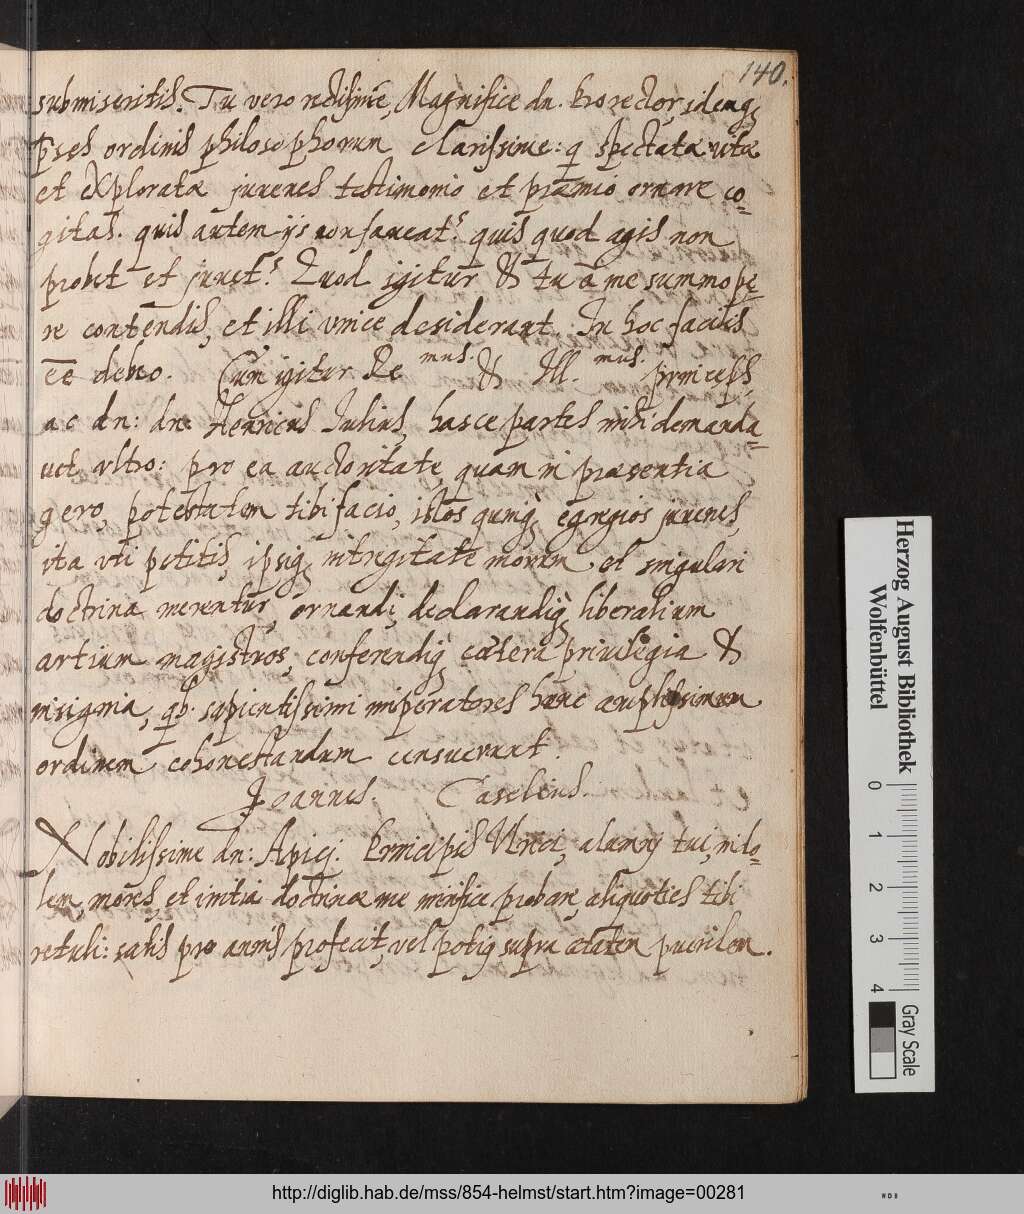 140.
submiseritis. Tu vero rectissime, Magnifice dn. Prorector, idemq;
pses ordinis philosophorum clarissime: q spectatæ vitæ
et exploratæ juvenes testimonio et præmio ornare co-
gitas. quis autem ijs non faveat? quis quod agis non
probet et juvet? Quod igitur & tu a me summope
re contendis, et illi vnice desiderant. In hoc facilis
ee debeo. Cum igitur Re mus. & Ill. mus. princeps,
ac dn: dn: Henricus Julius, hasce partes mihi demanda-
uet vltro: pro ea auctoritate, quam in præsentia
gero, potestatem tibi facio, istos quinq; egregios juvenes,
ita vti petitis, ipsiq; integritate morum et singulari
doctrina merentur, ornandi, declarandiq; liberalium
artium magistros, conferendiq; cætera privilegia &
insignia, qb. sapientissimi imperatores hunc amplissimum
ordinem cohonestandum censuerunt.
Joannes Caselius.
Nobilissime dn: Apici. Principis Vrnei, alumni tui, indo-
lem, mores, et initia doctrinæ me mirifice probare, aliquoties tibi
retuli: satis pro annis profecit, vel potiq supra ætatem puerilem.
Herzog August Bibliothek
Wolfenbüttel
0 1 2 3 4
Gray Scale
http://diglib.hab.de/mss/854-helmst/start.htm?image=00281